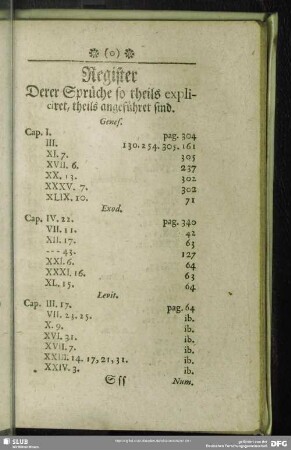 ❀ (o) ❀
Register
Derer Sprüche so theils expli-
ciret, theils angeführet sind.
Genes.
Cap. I. pag. 304
III. 130. 254. 305. 161
XI. 7. 305
XVII. 6. 237
XX. 13. 302
XXXV. 7. 302
XLIX. 10. 71
Exod.
Cap. IV. 22. pag. 340
VII. 11. 42
XII. 17. 63
--- 43. 127
XXI. 6. 64
XXXI. 16. 63
XL. 15. 64
Levit.
Cap. III. 17. pag. 64
VII. 23. 25. ib.
X. 9. ib.
XVI. 31. ib.
XVII. 7. ib.
XXIII. 14. 17, 21, 31. ib.
XXIV. 3. ib.
S ss Num.
SLUB
Wir führen Wissen.
gefördert von der
Deutschen Forschungsgemeinschaft
DFG